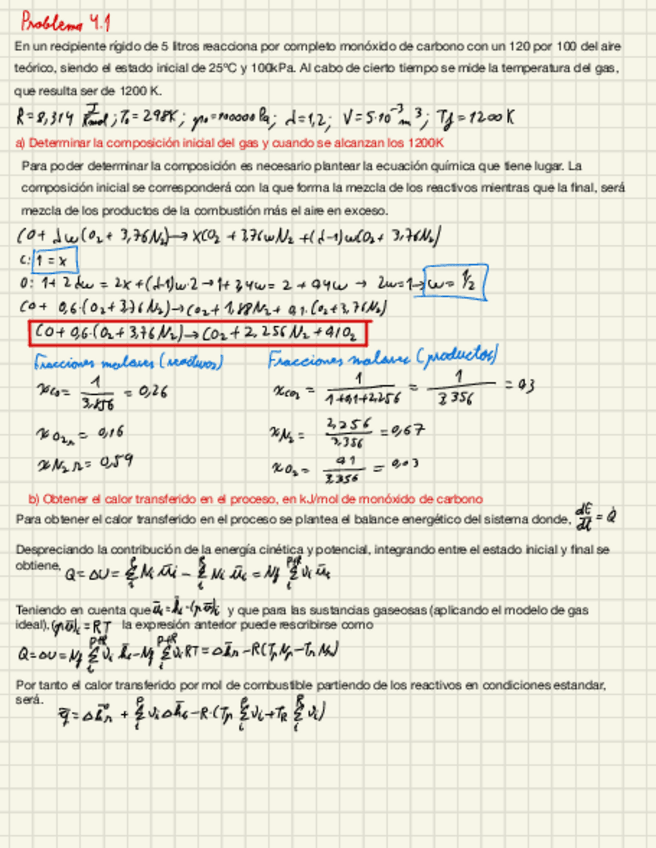 Problema 4.1
En un recipiente rígido de 5 litros reacciona por completo monóxido de carbono con un 120 por 100 del aire
teórico, siendo el estado inicial de 25ºC y 100kPa. Al cabo de cierto tiempo se mide la temperatura del gas,
que resulta ser de 1200 K.
R=8,314 J/Kmol; T₀=298K; p₀=100000 Pa; λ=1,2; V=5·10⁻³ m³; Tf=1200K
a) Determinar la composición inicial del gas y cuando se alcanzan los 1200K
Para poder determinar la composición es necesario plantear la ecuación química que tiene lugar. La
composición inicial se corresponderá con la que forma la mezcla de los reactivos mientras que la final, será
mezcla de los productos de la combustión más el aire en exceso.
CO + λw(O₂ + 3,76N₂) → xCO₂ + 3,76wN₂ + (λ-1)w(O₂ + 3,76N₂)
C: 1 = x
O: 1 + 2λw = 2x + (λ-1)w·2 → 1 + 2,4w = 2 + 0,4w → 2w = 1 → w = 1/2
CO + 0,6·(O₂ + 3,76N₂) → CO₂ + 1,88N₂ + 0,1·(O₂ + 3,76N₂)
CO + 0,6·(O₂ + 3,76N₂) → CO₂ + 2,256N₂ + 0,1O₂
Fracciones molares (reactivos)
Fracciones molares (productos)
xCO = 1/3,856 = 0,26
xCO₂ = 1/(1+0,1+2,256) = 1/3,356 = 0,3
xO₂,r = 0,16
xN₂ = 2,256/3,356 = 0,67
xN₂,r = 0,59
xO₂ = 0,1/3,356 = 0,03
b) Obtener el calor transferido en el proceso, en kJ/mol de monóxido de carbono
Para obtener el calor transferido en el proceso se plantea el balance energético del sistema donde, dE/dt = Q̇
Despreciando la contribución de la energía cinética y potencial, integrando entre el estado inicial y final se
obtiene, Q = ΔU =
Teniendo en cuenta que y que para las sustancias gaseosas (aplicando el modelo de gas
ideal). = RT la expresión anterior puede rescribirse como
Q = ΔU =
Por tanto el calor transferido por mol de combustible partiendo de los reactivos en condiciones estandar,
será.